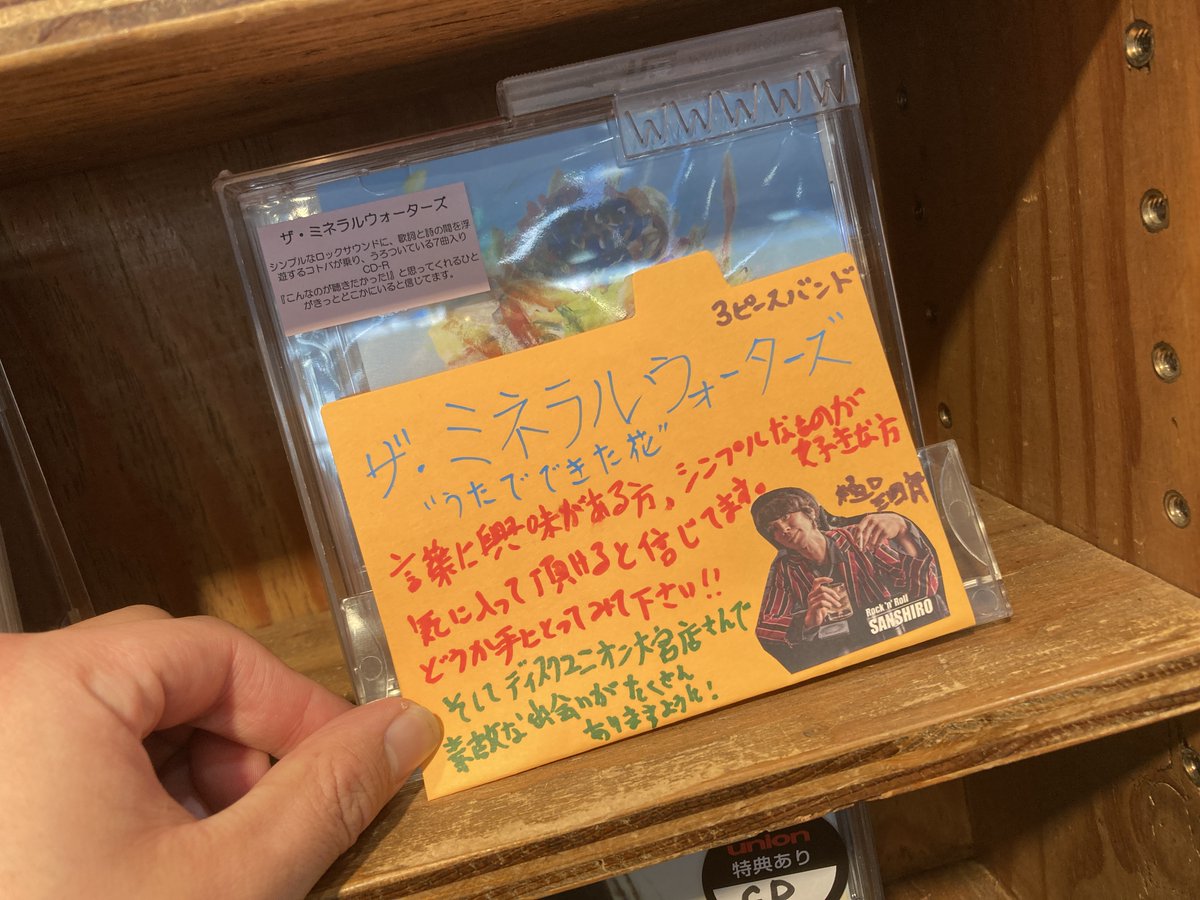 WWWWW
ザ・ミネラルウォーターズ
シンプルなロックサウンドに、歌詞と詩の間を浮
遊するコトバが乗り、うろついている7曲入り
CD-R
『こんなのが聴きたかった!』と思ってくれるひと
がきっとどこかにいると信じてます。
3ピースバンド
ザ・ミネラルウォーターズ
"うたでできた花"
言葉に興味がある方、シンプルなものが
好きな方
気に入って頂けると信じてます。
どうか手にとってみて下さい!!
そしてディスクユニオン大宮店さんで
素敵な出会いがたくさん
ありますように!
Rock'n'Roll
SANSHIRO
union
特典あり
CD